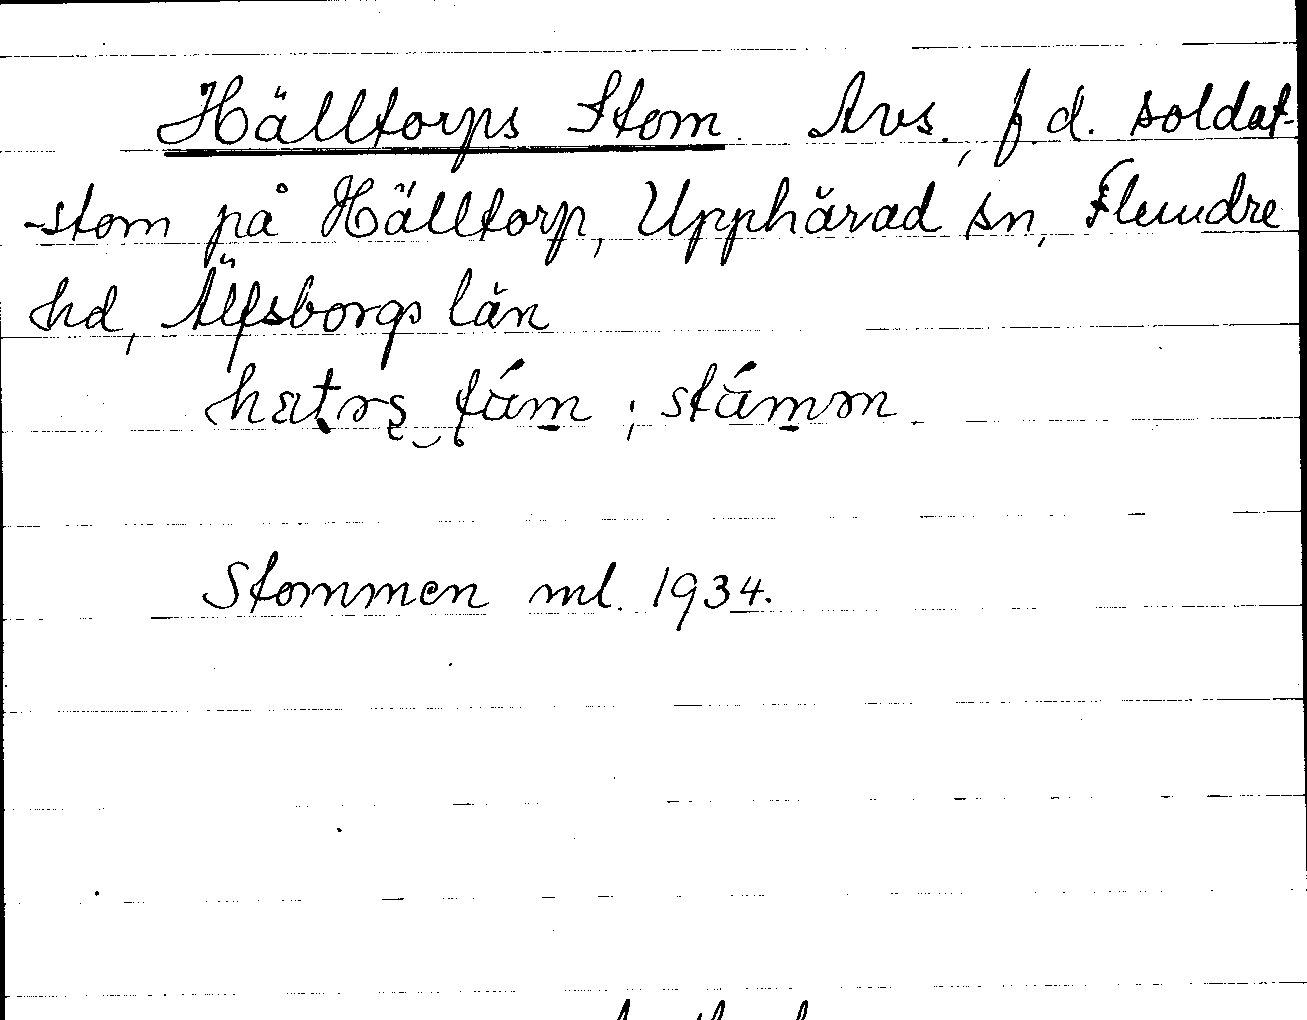 Hälltorps Stom. Avs., f.d. soldat-
-stom på Hälltorp, Upphärad sn, Flundre
hd, Älfsborgs län
Stommen ml. 1934.